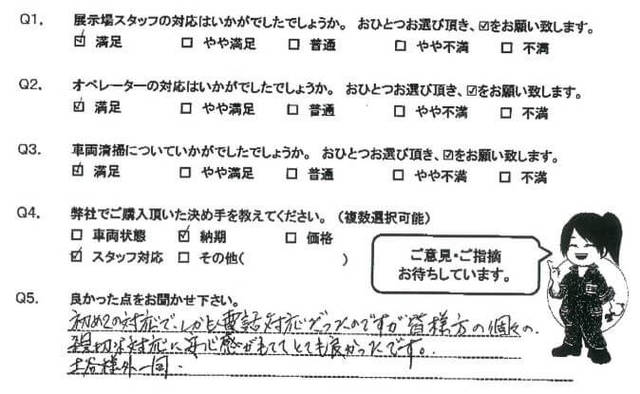 Q1. 展示場スタッフの対応はいかがでしたでしょうか。 おひとつお選び頂き、☑をお願い致します。
☑ 満足 □ やや満足 □ 普通 □ やや不満 □ 不満
Q2. オペレーターの対応はいかがでしたでしょうか。 おひとつお選び頂き、☑をお願い致します。
☑ 満足 □ やや満足 □ 普通 □ やや不満 □ 不満
Q3. 車両清掃についていかがでしたでしょうか。 おひとつお選び頂き、☑をお願い致します。
☑ 満足 □ やや満足 □ 普通 □ やや不満 □ 不満
Q4. 弊社でご購入頂いた決め手を教えてください。(複数選択可能)
□ 車両状態 ☑ 納期 □ 価格
☑ スタッフ対応 □ その他( )
ご意見・ご指摘
お待ちしています。
Q5. 良かった点をお聞かせ下さい。
初めての対応で、しかも電話対応だったのですが皆様方の個々の、
親切な対応に安心感がもててとても良かったです。
様外一同.